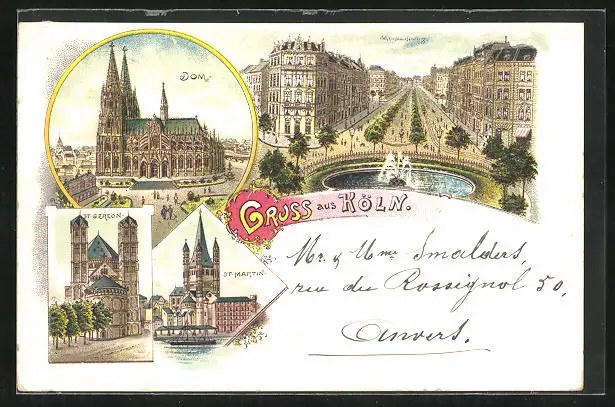 DOM.
GRUSS aus KÖLN.
ST. GEREON.
ST. MARTIN.
Mr. & Mme Smalders,
rue du Rossignol 50,
Anvers.